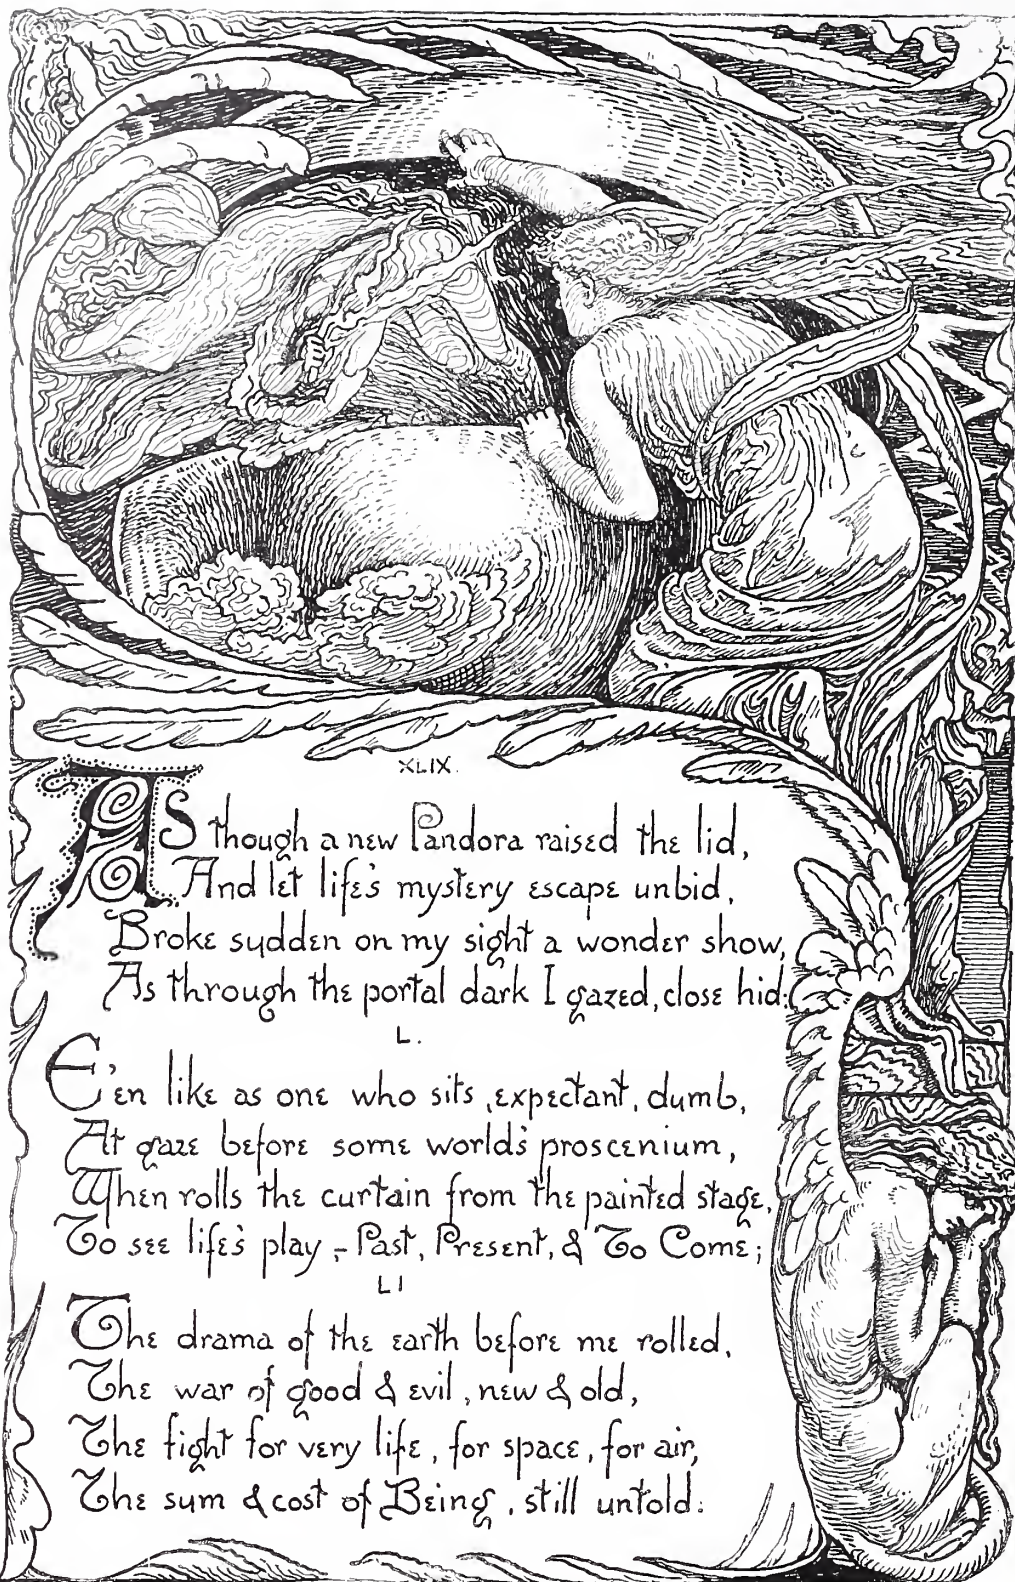 XLIX.
As though a new Pandora raised the lid,
And let life's mystery escape unbid,
Broke sudden on my sight a wonder show,
As through the portal dark I gazed, close hid:
L.
E'en like as one who sits, expectant, dumb,
At gaze before some world's proscenium,
When rolls the curtain from the painted stage,
To see life's play,- Past, Present, & To Come;
LI
The drama of the earth before me rolled,
The war of good & evil, new & old,
The fight for very life, for space, for air,
The sum & cost of Being, still untold: